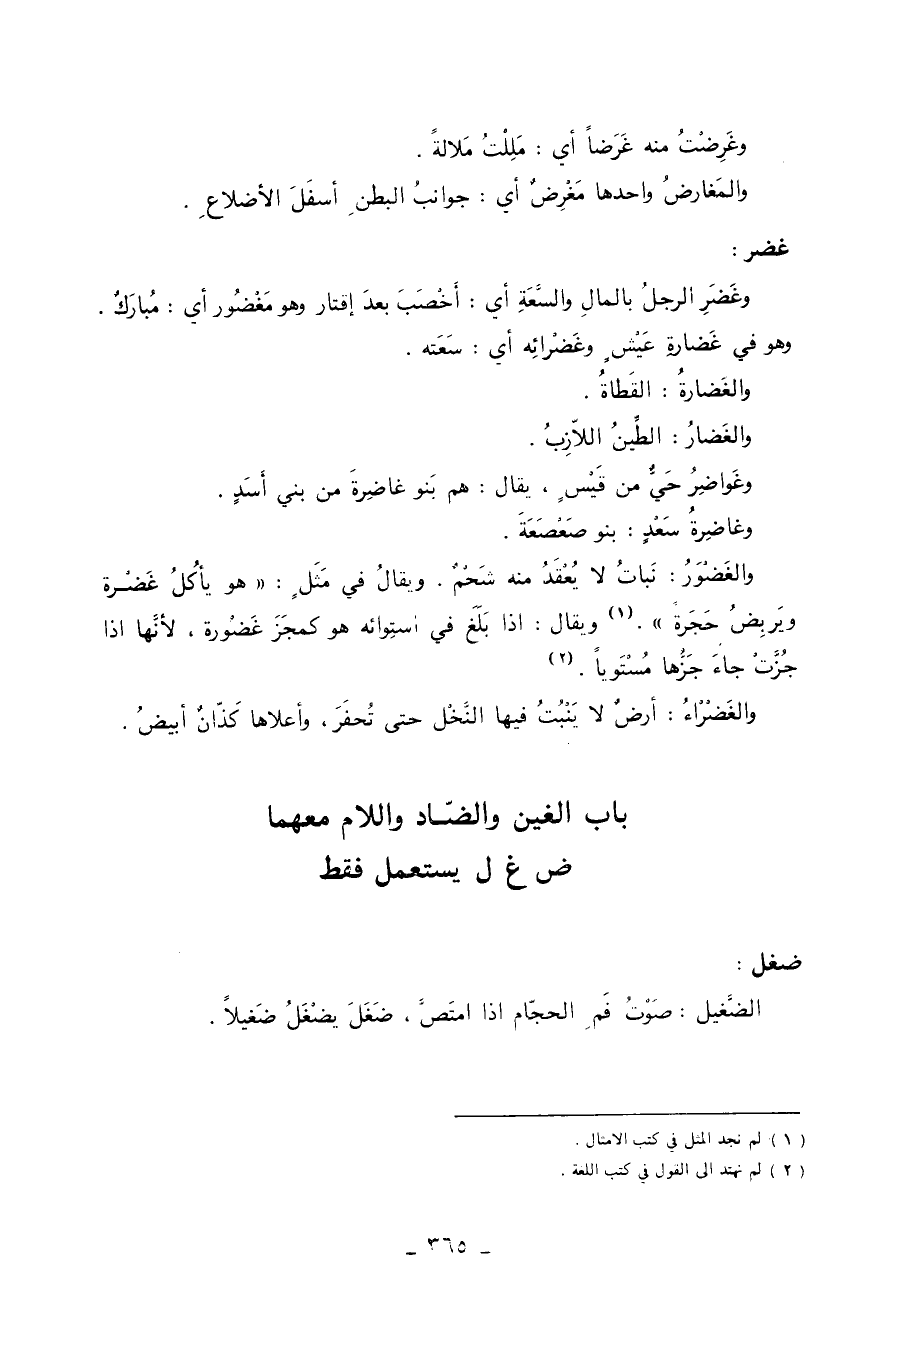 وغَرِضْتُ منه غَرَضاً أي : مَلِلْتُ مَلالةً .
والمَغارضُ واحدها مَغْرِضٌ أي : جوانبُ البطنِ أسفَلَ الأضلاعِ .
غضر :
وغَضَرِ الرجلُ بالمالِ والسَّعَةِ أي : أَخْصَبَ بعدَ إقتار وهو مَغْضُور أي : مُبارَكٌ .
وهو في غَضارةِ عَيْشٍ وغَضْرائِه أي : سَعَته .
والغَضارةُ : القَطاةُ .
والغَضارُ : الطِّينُ اللاّزِبُ .
وغَواضِرُ حَيٌّ من قَيْسٍ ، يقال : هم بَنو غاضِرةَ من بني أسَدٍ .
وغاضِرةُ سَعْدٍ : بنو صَعْصَعَةَ .
والغَضْوَرُ : نَباتُ لا يُعْقَدُ منه شَحْمٌ . ويقالُ في مَثَلٍ : « هو يأكُلُ غَضْرة
ويَربِضُ حَجَرةً » .(١) ويقال : اذا بَلَّغ في استِوائه هو كمجَزِّ غَضْورة ، لأنَّها اذا
جُزَّتْ جاءَ جَزُّها مُسْتَوياً .(٢)
والغَضْرْاءُ : أرضٌ لا يَنْبُتُ فيها النَّخْل حتى تُحفَرَ ، وأعلاها كَذّانٌ أبيضُ .
باب الغين والضّاد واللام معهما
ض غ ل يستعمل فقط
ضغل :
الضَّغيل : صَوْتُ فَمِ الحجّام اذا امتَصَّ ، ضَغَلَ يضْغَلُ ضَغيلاً .
( ١ ) لم نجد المثل في كتب الامثال .
( ٢ ) لم نهتد الى القول في كتب اللغة .
ـ ٣٦٥ ـ